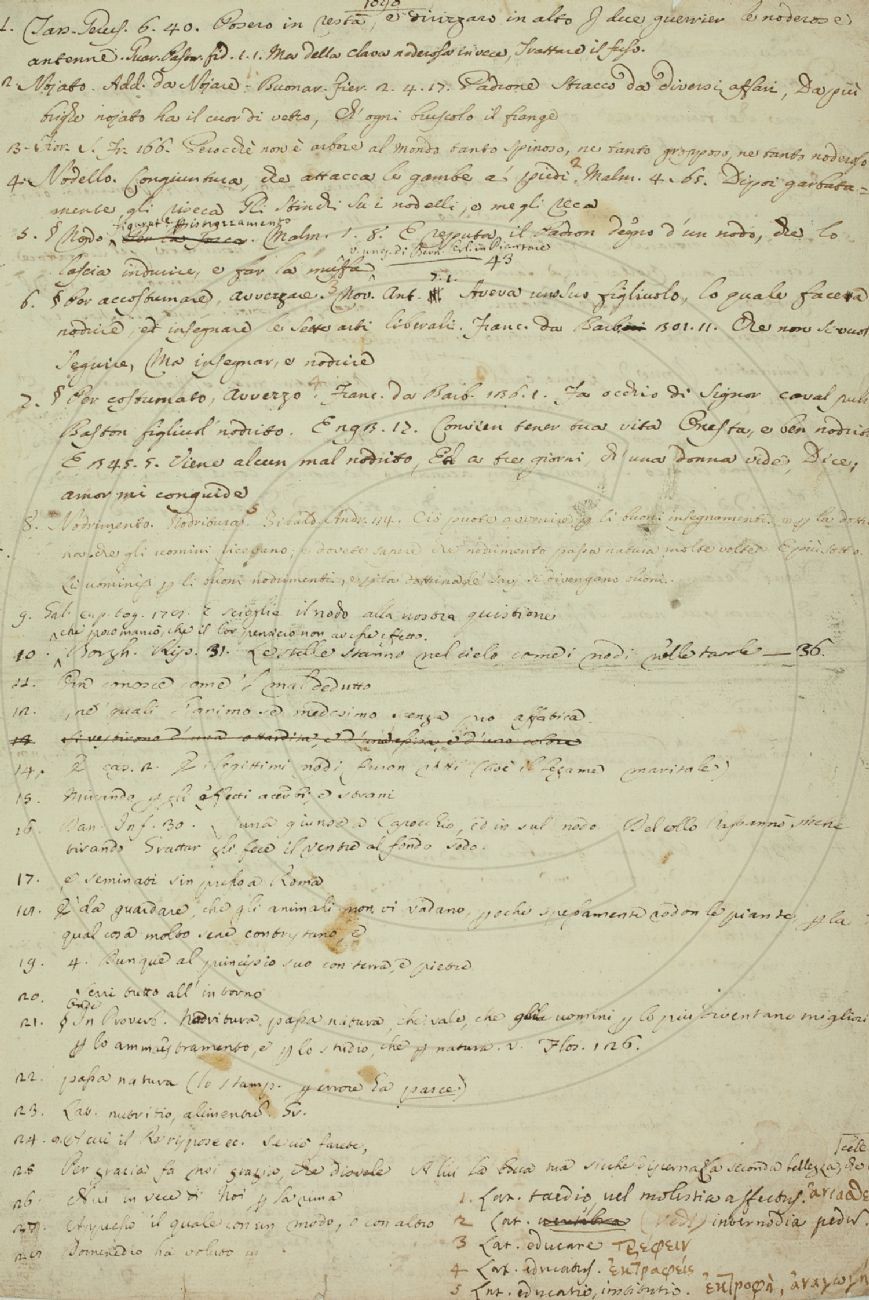 1090
1. Tass. Gerus. 6. 40. Posero in resta, e dirizzaro in alto I due guerrier le noderose
antenne. Guar. Past. fid. 1. 1. Ma della clava noderosa invece, Trattare il fuso.
2. Nojato. Add. da Nojare. Buonar. Fier. 2. 4. 17. Padrone stracco da diversi affari, Da più
brighe nojato ha il cuor di vetro, Ch' ogni bruscolo il frange
3. Fior. S. Fr. 166. Perocchè non è arbore al mondo tanto spinoso, ne tanto gropposo, ne tanto noderoso
4. Nodello. Congiuntura, che attacca le gambe a' piedi. 2 Malm. 4. 65. Dipoi garbata=
mente gli rireca Gli stinchi su i nodelli, e me gli
5. § Nodo. figurat. Malm. 1. 8. E reputa il padron degno d'un nodo, che lo
lascia indurire, e far la muffa 43
6. § Per accostumare, avvezzare. 3 Nov. Ant. 7. 1. Aveva un suo figliuolo, lo quale faceva
nodrire, ed insegnare le sette arti liberali. Franc. da Barb. 301. 11. Che non si vuol
seguire, Ma insegnar, e nodrire
7. § Per costumato, avvezzo. 4 Franc. da Barb. 136. 1. Fa occhio di signor caval
Baston figliuol nodrito. E 13. 17. Convien tener tua vita Onesta, e ben nodrita
E 345. 5. Viene alcun mal nodrito, Ed a tre giorni, ch' una donna vide, Dice,
amor mi conquide
8. Nodrimento. Nodritura. 5 Albert. 114. Ciò puote avvenire p li buoni insegnamenti, e p la dottri
na che gli uomini ricevano; e dovete sapere che nodrimento passa natura molte volte. E più sotto.
Li uomini p li buoni nodrimenti
9. Gal. 1707. E scioglie il nodo alla nostra quistione
che poco mancò, che il lor pensiero non avesse effetto.
10. Borgh. Rip. 31. Le stelle stanno nel cielo come i nodi nelle tavole — 36.
11. Ben conosce come 'l mal dedutto
12. ne' quali l'animo se medesimo senza pro affatica.
13. Si vestirono d'una cottardita, e d'una
14. E cap. 2. E i legittimi nodi furon (cioè il legame maritale)
15. Mirando p gli effetti acerbi, e strani
16. Dan. Inf. 30. L'una giunse a Capocchio, ed in sul nodo Del collo l'assannò, sì che
tirando Grattar gli fece il ventre al fondo sodo.
17. e seminati sin presso a Roma
18. E da guardare, che gli animali non vi vadano, poche spessamente rodon le piante, p la
qual cosa molto sene contristano, e
19. 4. Dunque al principio suo con terra, e pietre
20. Serri tutto all' intorno
21. § In Proverb. Nodritura passa natura, che vale, che gli uomini p lo più diventano migliori
p lo ammaestramento, e p lo studio, che p natura. v. Flos. 126.
22. passa natura (lo stamp. p errore ha pasce)
23. Lat. nutritio, alimentum. Gr.
24.
25. Per grazia fa noi grazia, che disvele A lui la bocca tua sicchè discerna La seconda bellezza, che
cele
26. Qui in vece di Noi p la rima
27. il quale con un modo, o con altro
28. Domeneddio ha voluto
1. Lat. taedio, vel molestia affectus.
2. Lat. internodia pedis.
3 Lat. educare τρεφειν
4 Lat. educatus. ἐκτραφείς
5 Lat. educatio, institutio. ἐκτροφὴ, ἀναγωγὴ